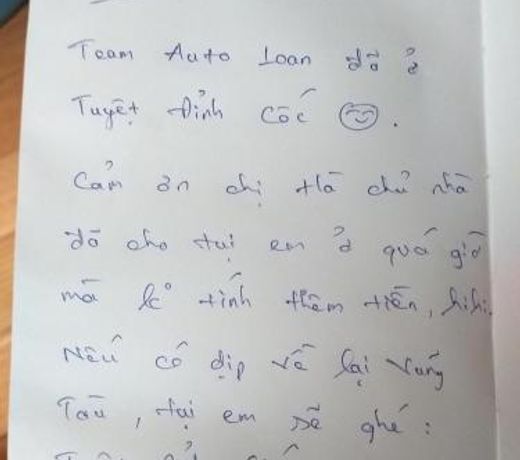 Team Auto Loan đã ở
Tuyệt Đỉnh Cốc 😊.
Cảm ơn chị Hà chủ nhà
đã cho tụi em ở quá giờ
mà k° tính thêm tiền, hihi.
Nếu có dịp về lại Vũng
Tàu, tụi em sẽ ghé :